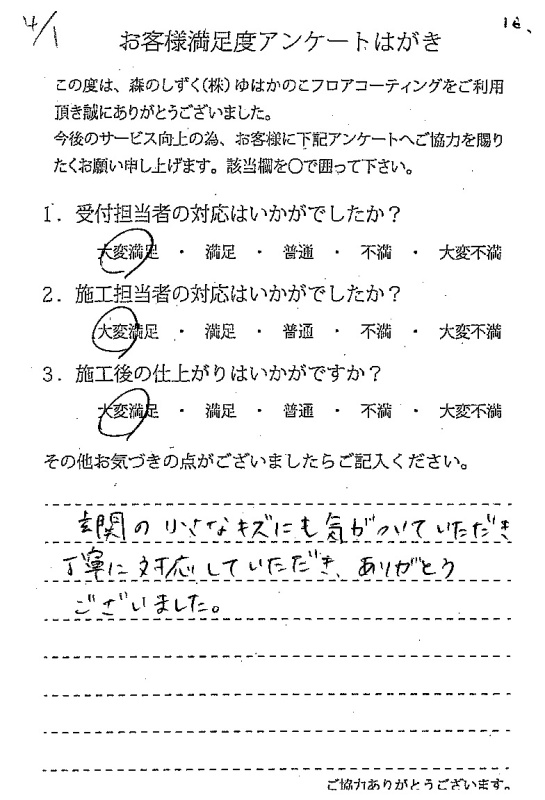 4/1
16、
お客様満足度アンケートはがき
この度は、森のしずく(株)ゆはかのこフロアコーティングをご利用
頂き誠にありがとうございました。
今後のサービス向上の為、お客様に下記アンケートへご協力を賜り
たくお願い申し上げます。該当欄を〇で囲って下さい。
1．受付担当者の対応はいかがでしたか？
大変満足 ・ 満足 ・ 普通 ・ 不満 ・ 大変不満
2．施工担当者の対応はいかがでしたか？
大変満足 ・ 満足 ・ 普通 ・ 不満 ・ 大変不満
3．施工後の仕上がりはいかがですか？
大変満足 ・ 満足 ・ 普通 ・ 不満 ・ 大変不満
その他お気づきの点がございましたらご記入ください。
玄関の小さなキズにも気がついていただき
丁寧に対応していただき、ありがとう
ございました。
ご協力ありがとうございます。